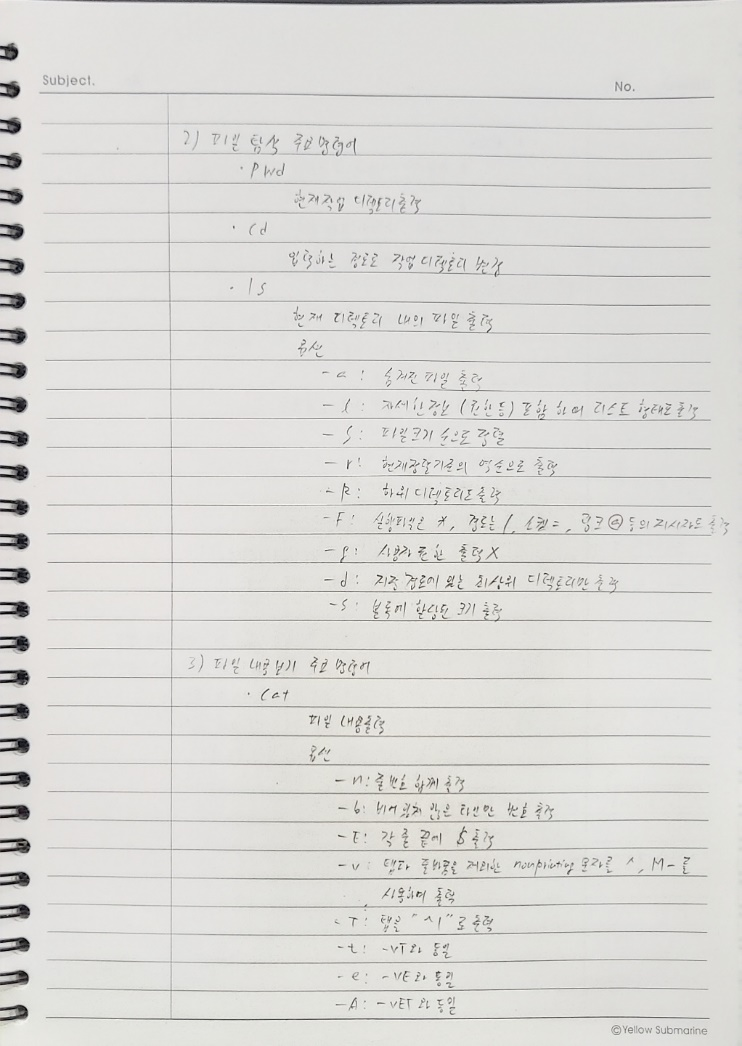 Subject.
No.
2) 파일 탐색 주요 명령어
· pwd
현재 작업 디렉토리 출력
· cd
입력하는 경로로 작업 디렉토리 변경
· ls
현재 디렉토리 내의 파일 출력
옵션
-a : 숨겨진 파일 출력
-l : 자세한 정보 (권한 등) 포함하여 리스트 형태로 출력
-S : 파일 크기 순으로 정렬
-r : 현재 정렬기준의 역순으로 출력
-R : 하위 디렉토리도 출력
-F : 실행파일은 *, 경로는 /, 소켓 =, 링크 @ 등의 지시자도 출력
-g : 사용자 권한 출력 X
-d : 지정 경로에 있는 최상위 디렉토리만 출력
-s : 블록에 할당된 크기 출력
3) 파일 내용 보기 주요 명령어
· cat
파일 내용 출력
옵션
-n : 줄번호 함께 출력
-b : 비어있지 않은 라인만 번호 출력
-E : 각 줄 끝에 $ 출력
-v : 탭과 줄바꿈을 제외한 nonprinting 문자를 ^, M- 를
사용하여 출력
-T : 탭을 "^I"로 출력
-t : -vT와 동일
-e : -vE와 동일
-A : -vET와 동일
©Yellow Submarine